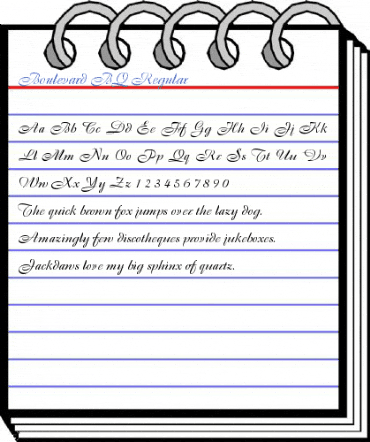 Boulevard BQ Regular
Aa Bb Cc Dd Ee Ff Gg Hh Ii Jj Kk
Ll Mm Nn Oo Pp Qq Rr Ss Tt Uu Vv
Ww Xx Yy Zz 1 2 3 4 5 6 7 8 9 0
The quick brown fox jumps over the lazy dog.
Amazingly few discotheques provide jukeboxes.
Jackdaws love my big sphinx of quartz.